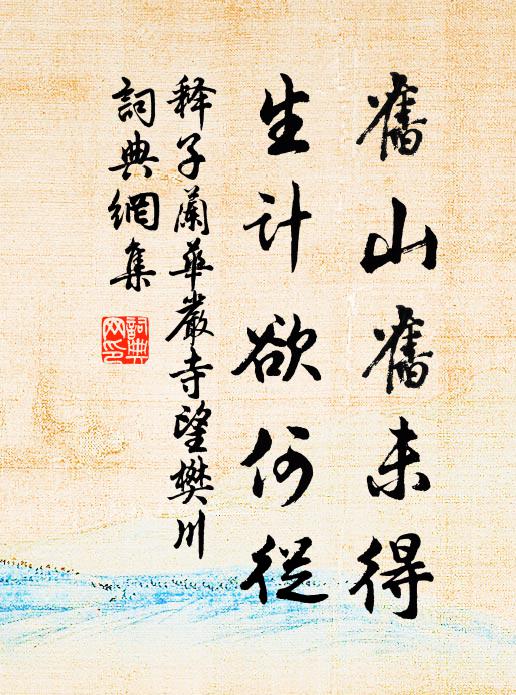 舊山舊未得
生计欲何從
释子蘭華嚴寺望樊川
詞典網集
詞典
网印